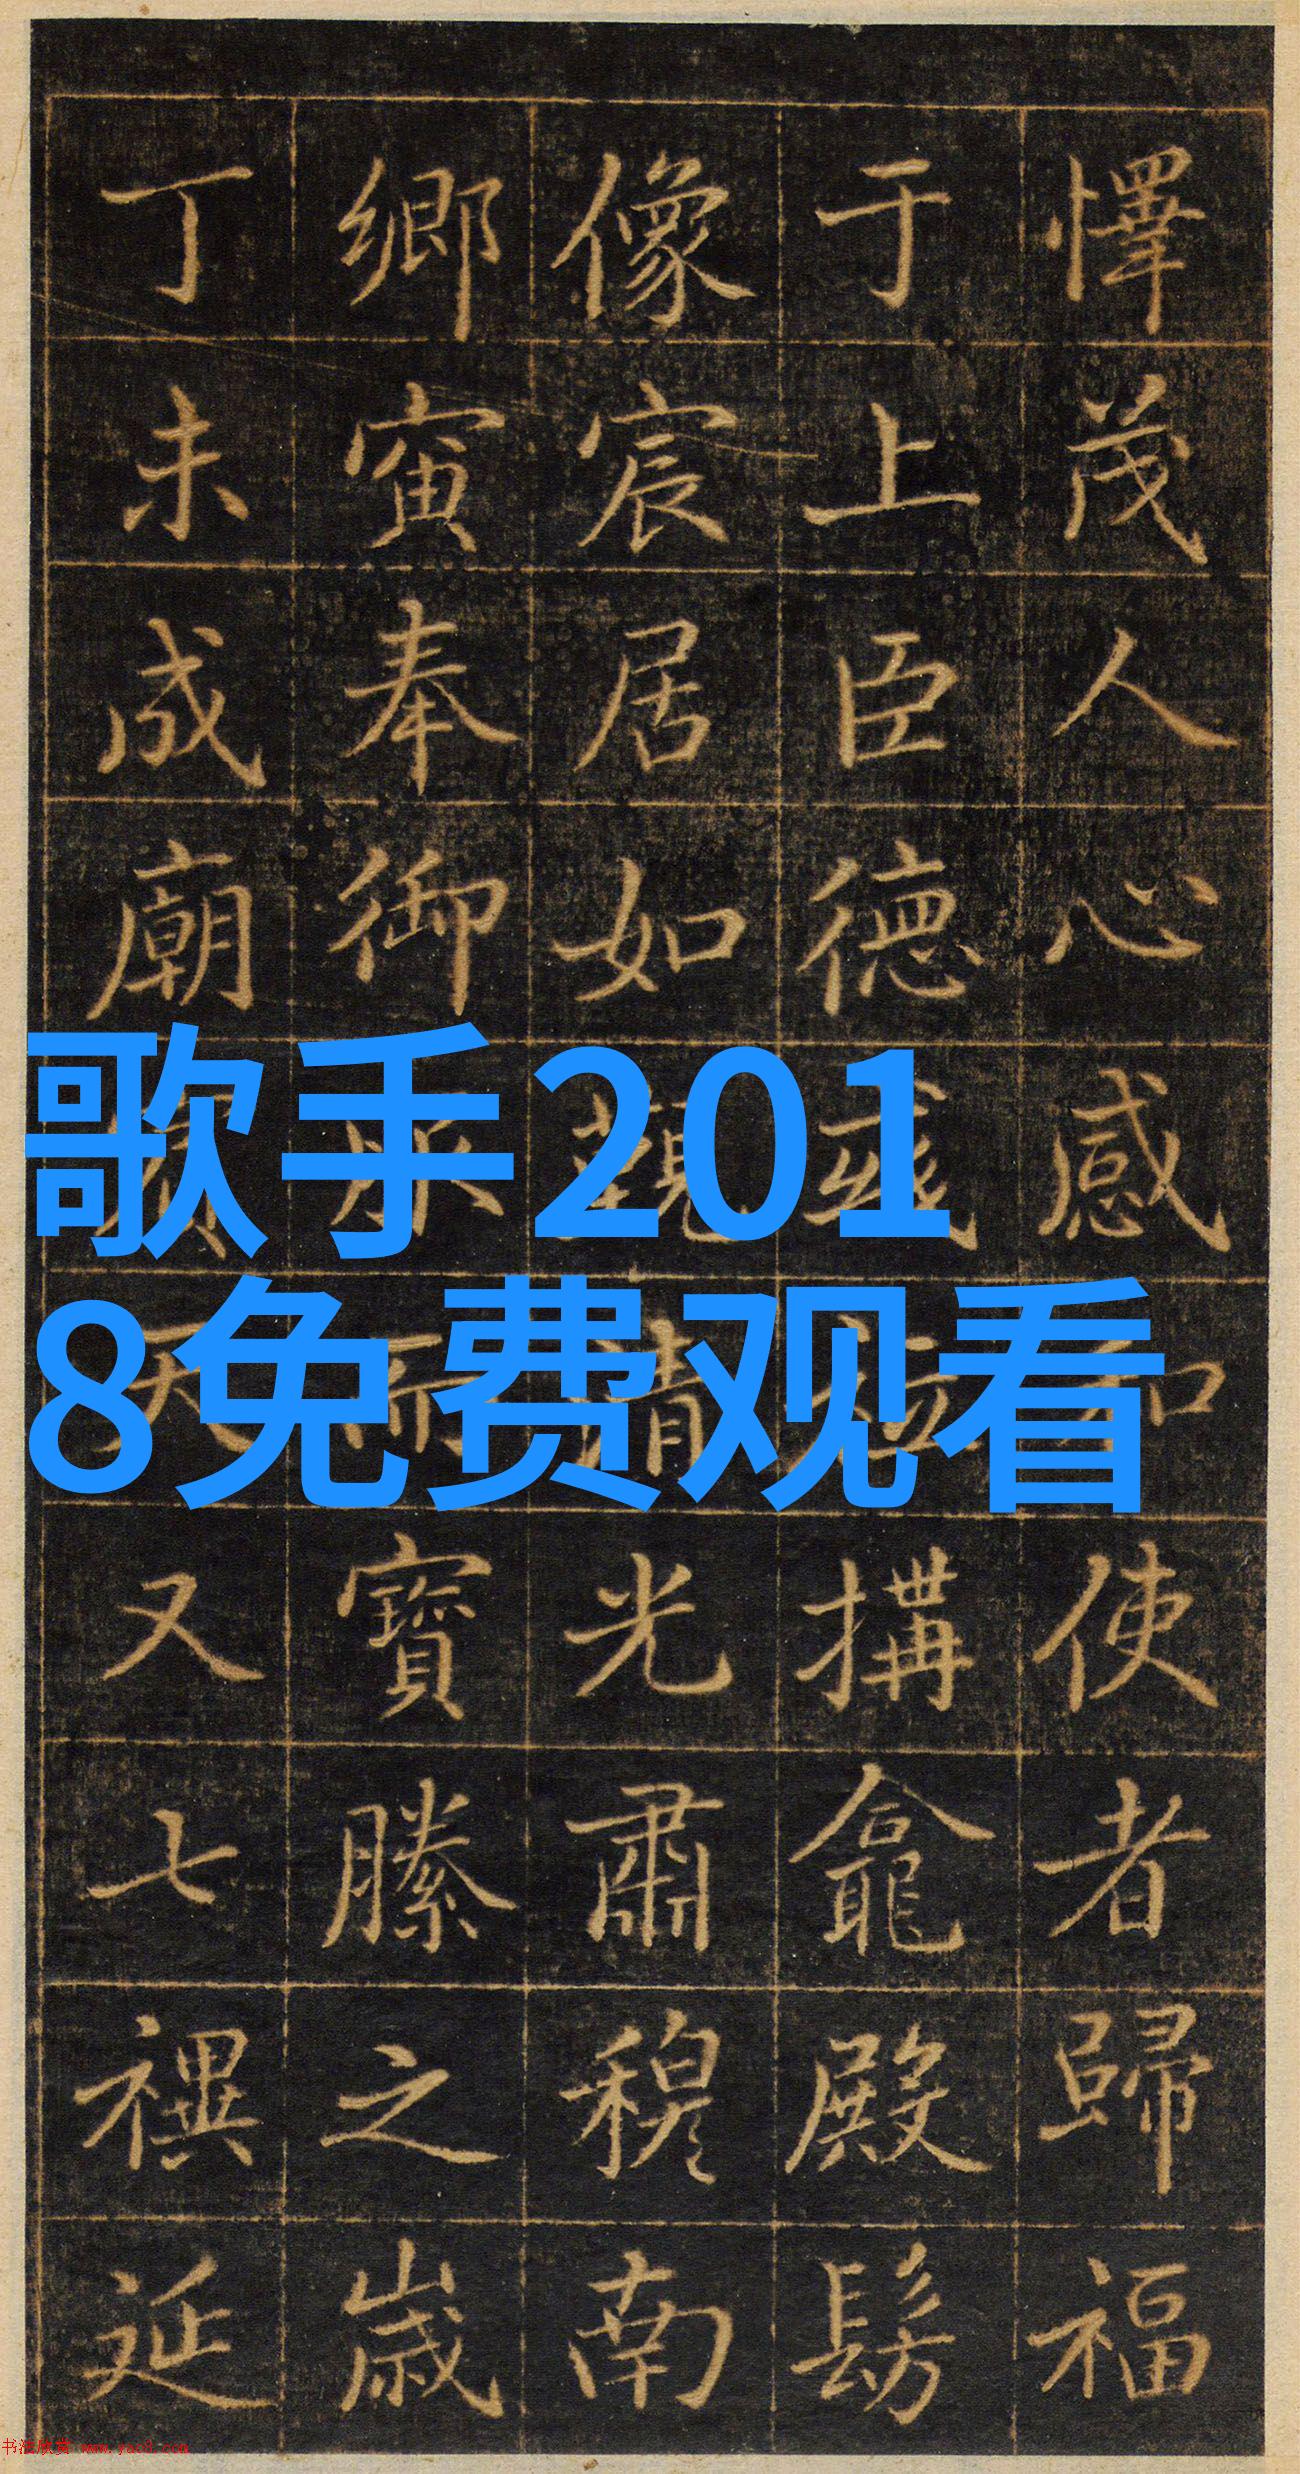 懌茂人心感和使者歸福
于上臣德搆龕殿髣
像宸居如觀清光肅穆南
鄉寅奉御寶縢之歲
丁未成廟天又七禩延
歌手201
8免费观看
书法欣赏 www.yac8.com